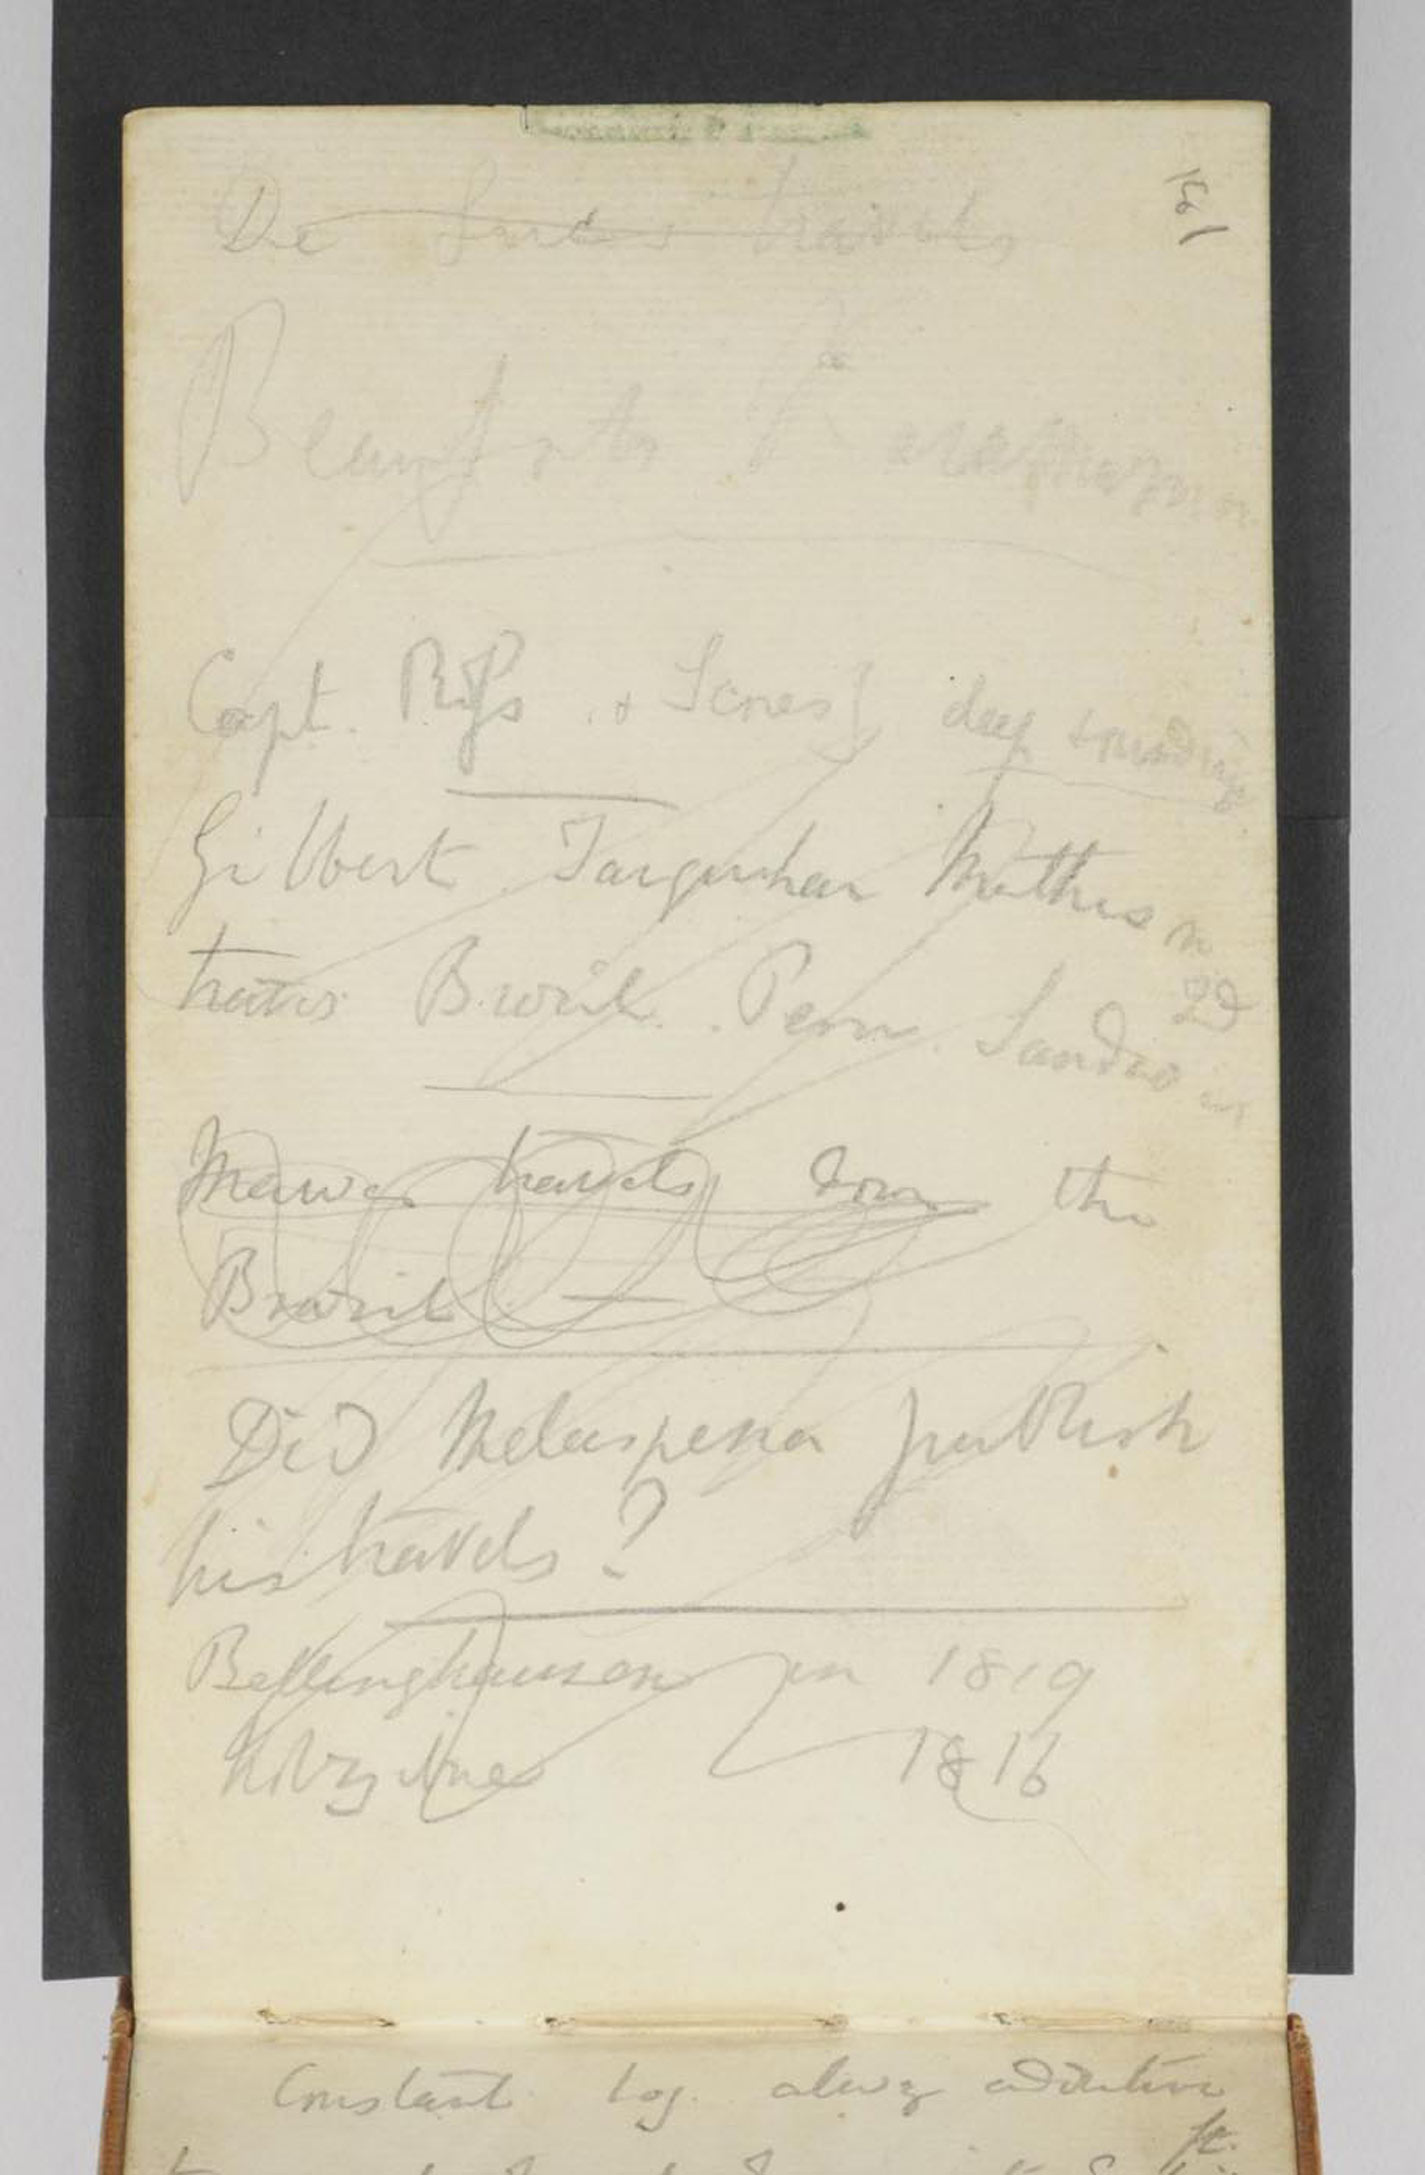 De Lucs travels
Beauforts Karamania
Capt. Ross & Scores} deep soundings
Gilbert Farquhar Mathison
travels Brazil. Peru. Sandwi
Mawes travels down the
Brazil —
Did Malaspena publish
his travels?
Bellinghausen in 1819
Kotzebue 1816
Constant log. alway additive